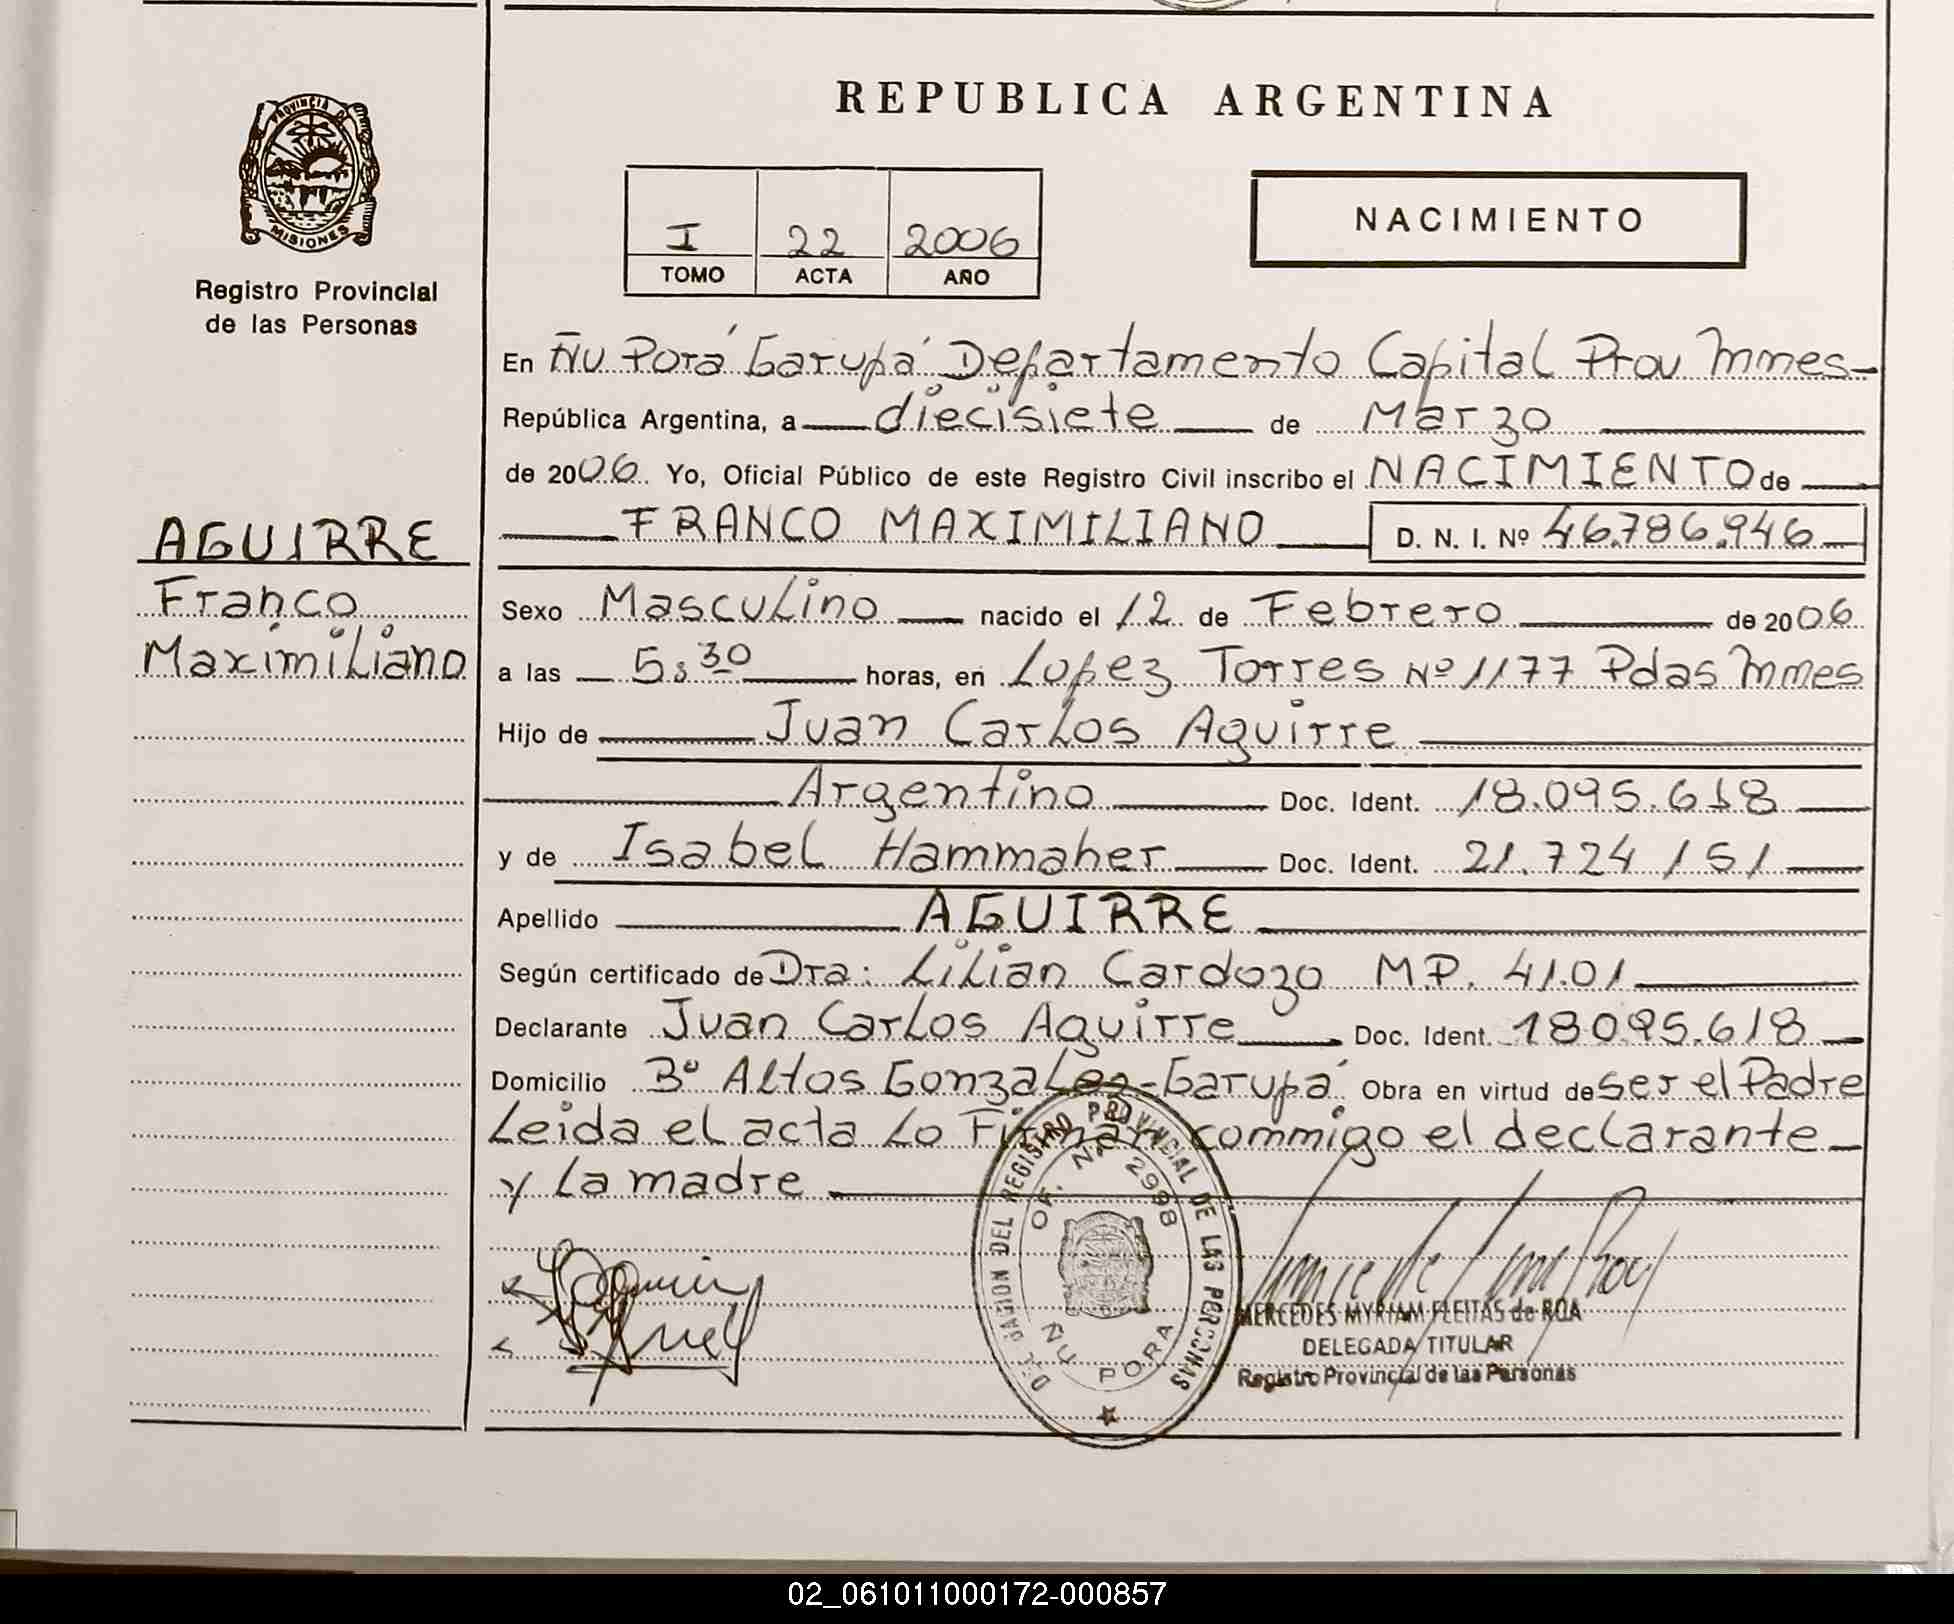 REPUBLICA ARGENTINA
PROVINCIA DE
MISIONES
Registro Provincial
de las Personas
I 22 2006
TOMO ACTA AÑO
NACIMIENTO
AGUIRRE
Franco
Maximiliano
En Ñu Porá Garupá Departamento Capital Prov Mnes
República Argentina, a diecisiete de Marzo
de 2006. Yo, Oficial Público de este Registro Civil inscribo el NACIMIENTO de
FRANCO MAXIMILIANO D. N. I. Nº 46.786.946
Sexo Masculino nacido el 12 de Febrero de 2006
a las 5:30 horas, en Lopez Torres Nº 1177 Pdas Mnes
Hijo de Juan Carlos Aguirre
Argentino Doc. Ident. 18.095.618
y de Isabel Hammaher Doc. Ident. 21.724 151
Apellido AGUIRRE
Según certificado de Dra: Lilian Cardozo M.P. 41.01
Declarante Juan Carlos Aguirre Doc. Ident. 18095.618
Domicilio Bº Altos Gonzalez-Garupá Obra en virtud de ser el Padre
Leida el acta Lo Firman commigo el declarante
y La madre
DELEGACION DEL REGISTRO PROVINCIAL DE LAS PERSONAS
OF. Nº 2998
ÑU PORA
MERCEDES MYRIAM FLEITAS de ROA
DELEGADA TITULAR
Registro Provincial de las Personas
02_061011000172-000857